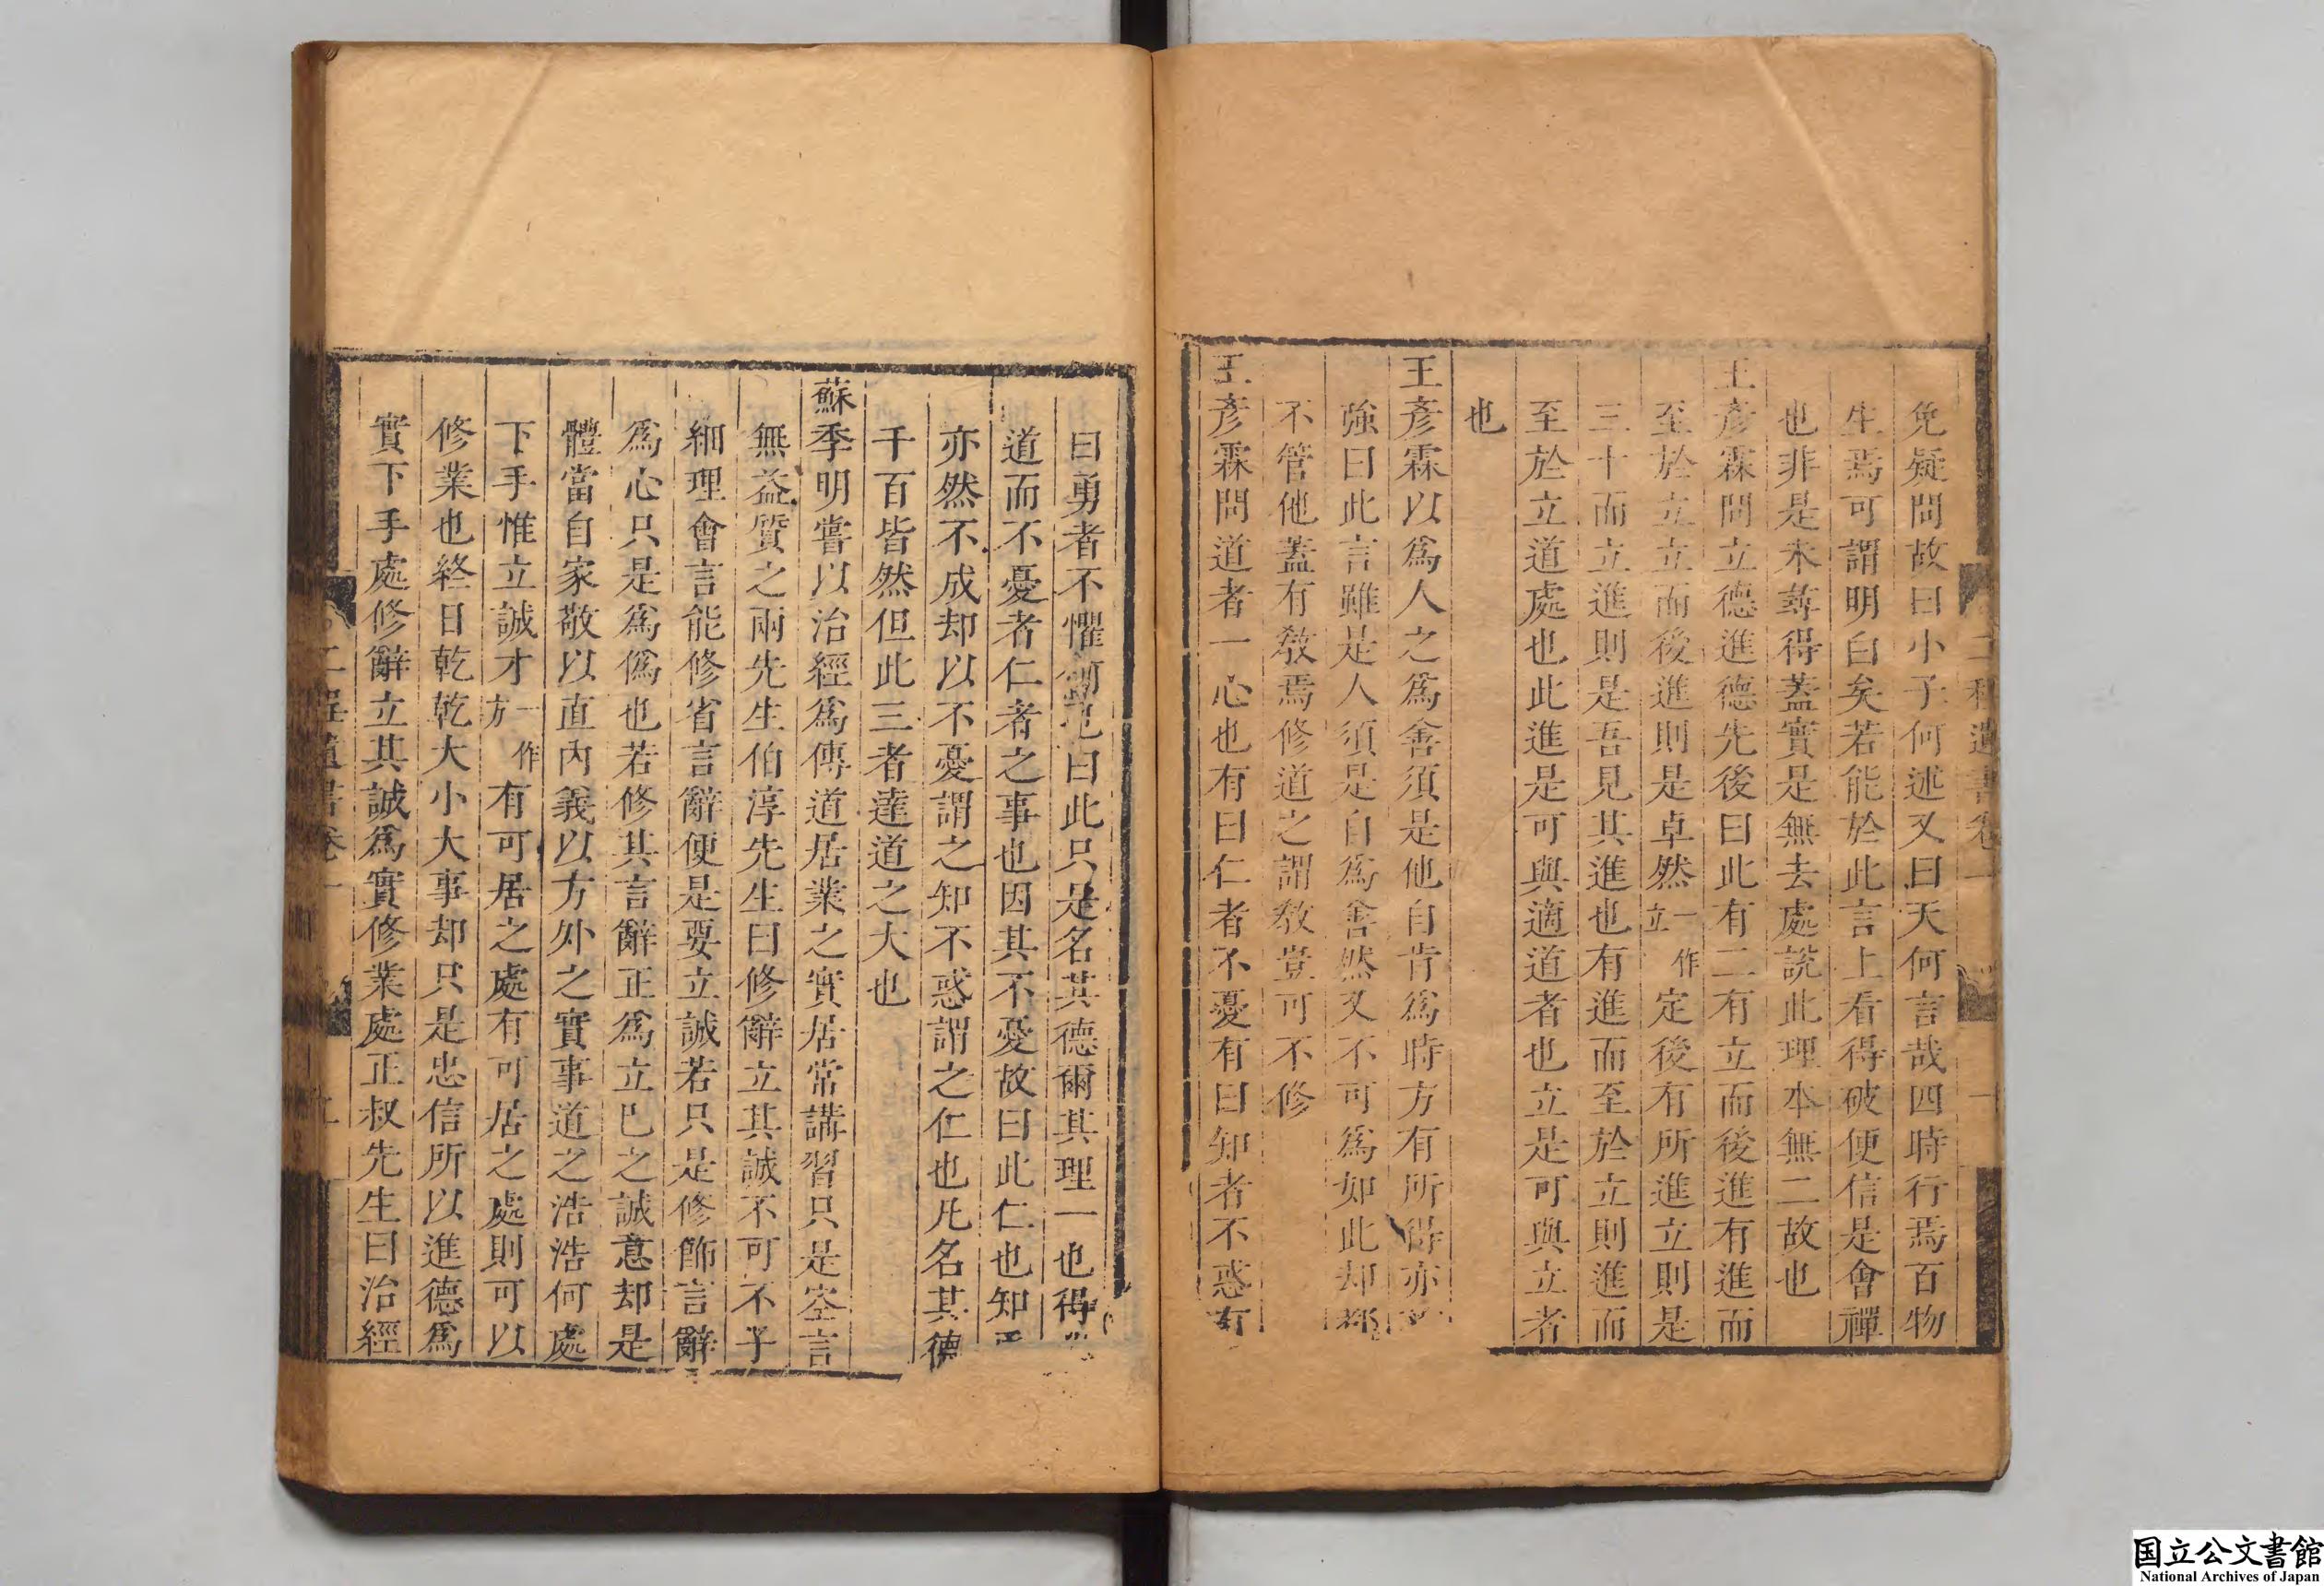 免疑問故曰小子何述又曰天何言哉四時行焉百物
生焉可謂明白矣若能於此言上看得破便信是會禪
也非是未尋得蓋實是無去處說此理本無二故也
王彥霖問立德進德先後曰此有二有立而後進有進而
至於立立而後進則是卓然一作立定後有所進立則是
三十而立進則是吾見其進也有進而至於立則進而
至於立道處也此進是可與適道者也立是可與立者
也
王彥霖以爲人之爲善須是他自肯爲時方有所得亦
強曰此言雖是人須是自爲善然又不可爲如此却都
不管他蓋有敎焉修道之謂敎豈可不修
王彥霖問道者一心也有曰仁者不憂有曰知者不惑有
曰勇者不懼何也曰此只是名其德爾其理一也得
道而不憂者仁者之事也因其不憂故曰此仁也知
亦然不成却以不憂謂之知不惑謂之仁也凡名其德
千百皆然但此三者達道之大也
蘇季明嘗以治經爲傳道居業之實居常講習只是空言
無益質之兩先生伯淳先生曰修辭立其誠不可不子
細理會言能修省言辭便是要立誠若只是修飾言辭
爲心只是爲僞也若修其言辭正爲立己之誠意却是
體當自家敬以直內義以方外之實事道之浩浩何處
下手惟立誠才一作方有可居之處有可居之處則可以
修業也終日乾乾大小大事却只是忠信所以進德爲
實下手處修辭立其誠爲實修業處正叔先生曰治經
二程遺書卷一
二
国立公文書館
National Archives of Japan